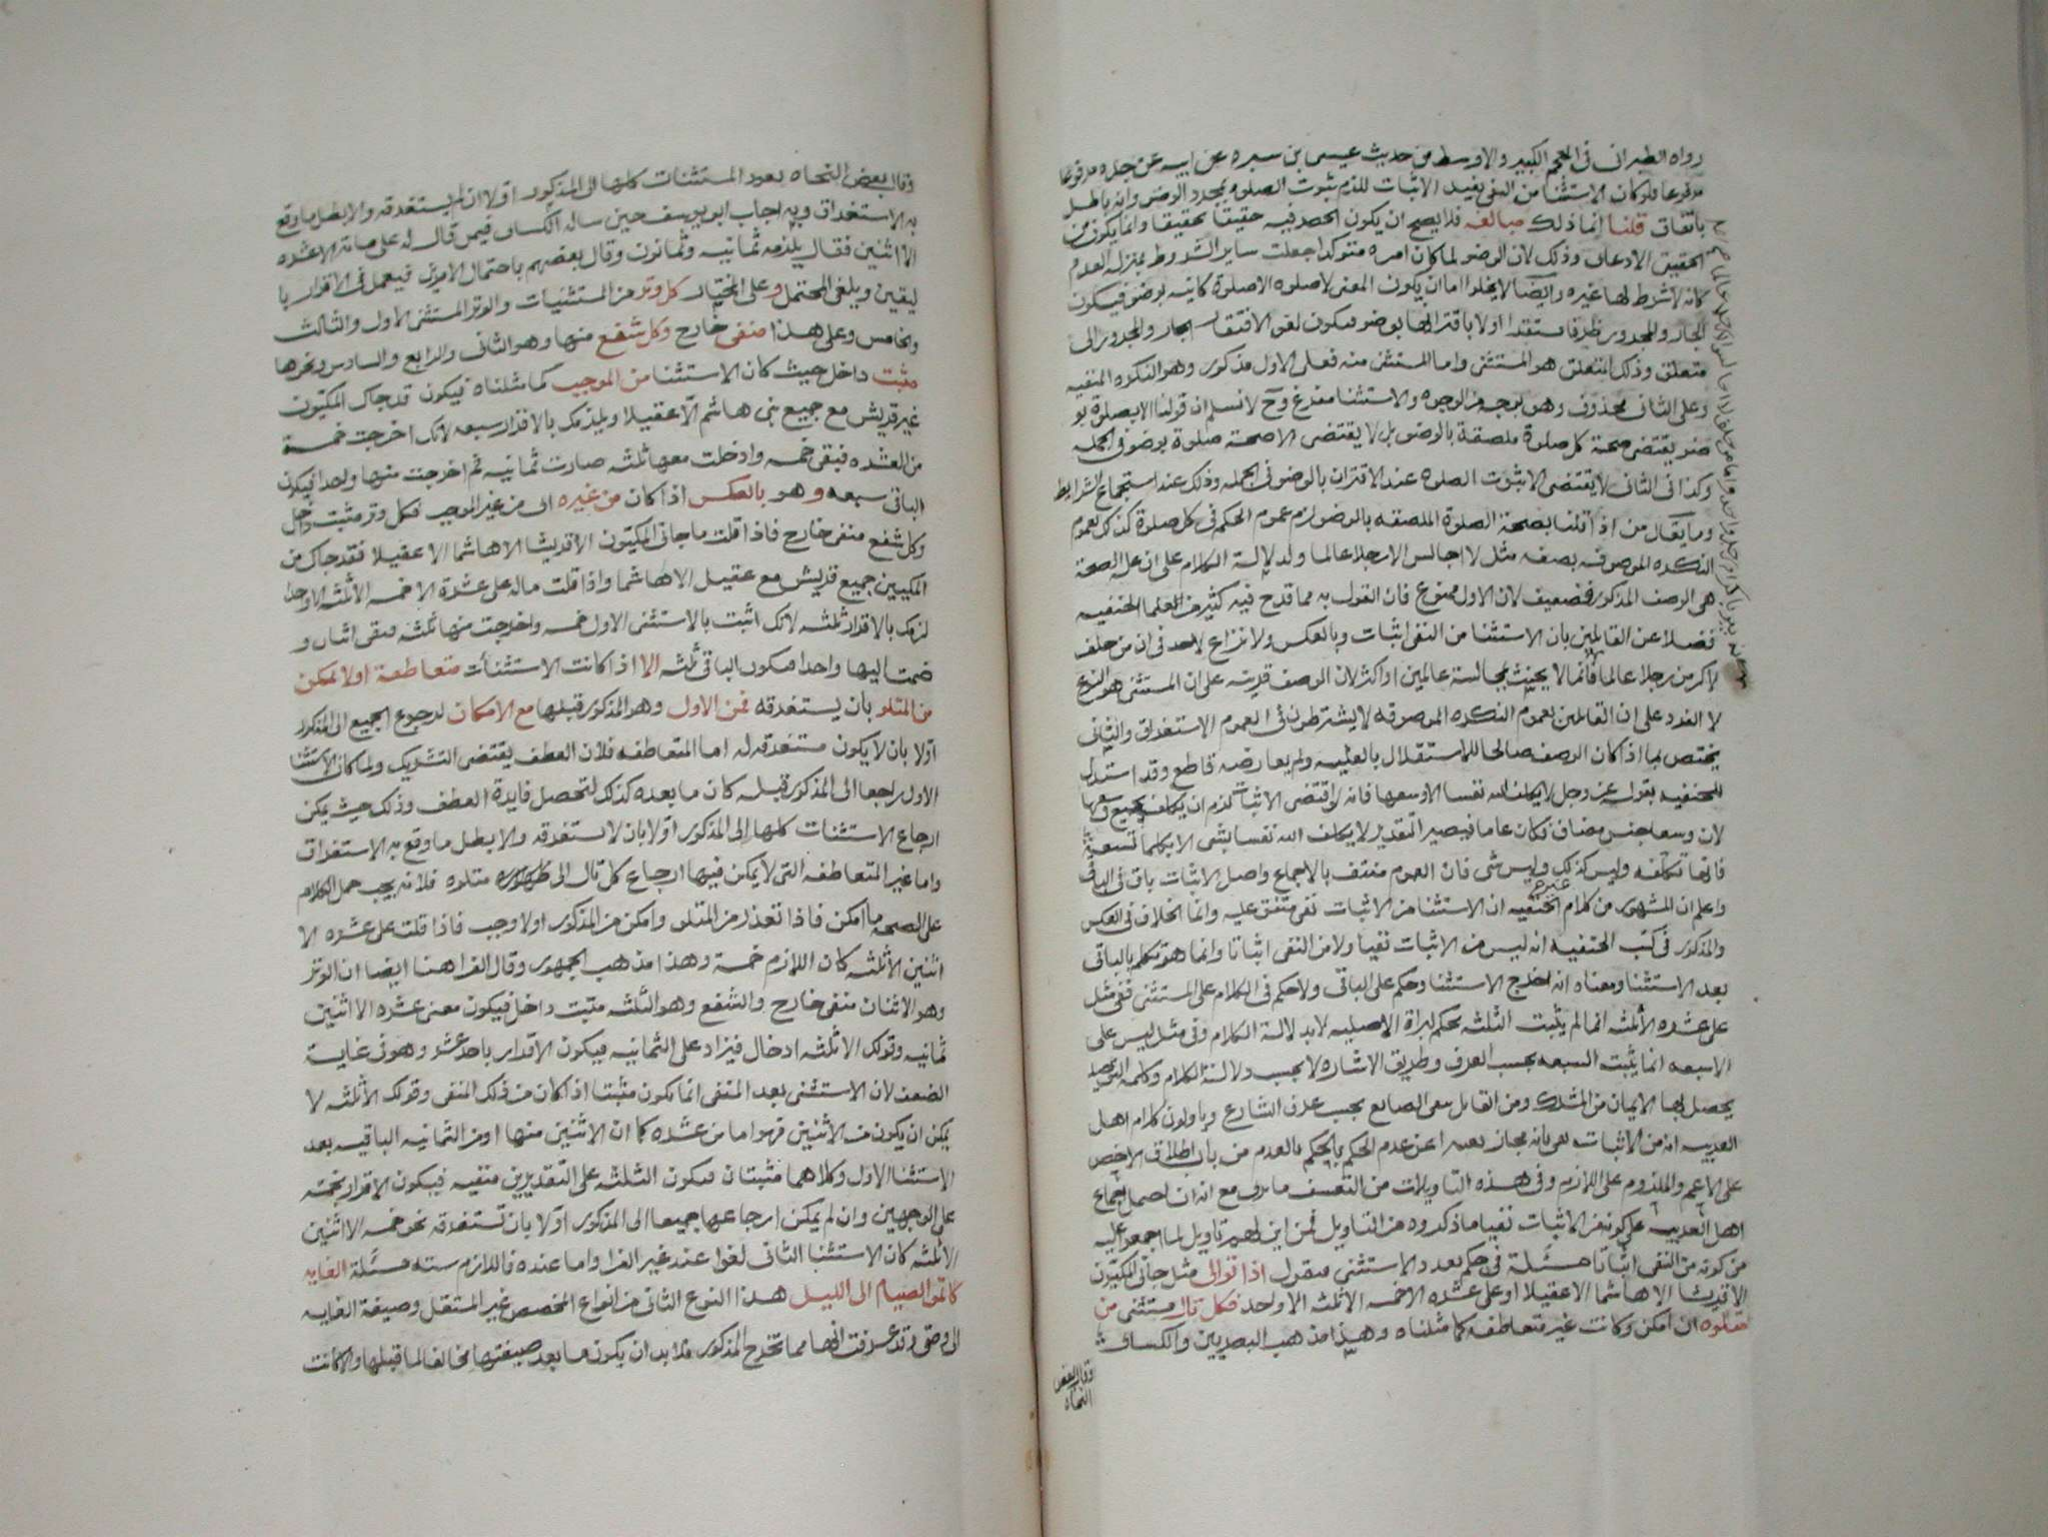 رواه الطبراني في المعجم الكبير والاوسط من حديث عيسى بن سبره عن ابيه عن جده مرفوعا
مرفوعا فلو كان الاستثنا من النفي يفيد الاثبات للزم ثبوت الصلوه بمجرد الوضو وانه باطل
باتفاق قلنا انما ذلك مبالغه فلا يصح ان يكون الحصر فيه حقيقيا تحقيقا وانما يكون من
الحقيقي الادعاى وذلك لان الوضو لما كان امره متوكدا جعلت ساير الشروط بمنزله العدم
كانه لا شرط لها غيره وايضا لا يخلوا اما ان يكون المعنى لا صلوه الا صلوة كاينه بوضو فيكون
الجار والمجرور ظرفا مستقرا اولا باقترانها بوضو فيكون لغوا لافتقار الجار والمجرور الى
متعلق وذلك المتعلق هو المستثنى واما المستثنى منه فعلى الاول مذكور وهو النكره المنفيه
وعلى الثاني محذوف وهو بوجه من الوجوه والاستثنا مفرغ وح لا نسلم ان قولنا الا بصلوة بو
ضو يقتضي صحة كل صلوة ملصقة بالوضو بل لا يقتضى الا صحة صلوة بوضو في الجمله
وكذا في الثاني لا يقتضى الا ثبوت الصلوه عند الاقتران بالوضو في الجمله وذلك عند استجماع الشرايط
وما يقال من اذا قلنا بصحة الصلوة الملصقه بالوضو لزم عموم الحكم في كل صلوة كذلك لعموم
النكره الموصوفه بصفه مثل لا اجالس الا رجلا عالما ولدلالة الكلام على ان علة الصحة
هي الوصف المذكور فضعيف لان الاول ممنوع فان القول به مما قدح فيه كثير من العلما الحنفيه
فضلا عن القايلين بان الاستثنا من النفي اثبات وبالعكس ولا نزاع لاحد في ان من حلف
لاكرمن رجلا عالما فانما لا يحنث بمجالسة عالمين او اكثر لان الوصف قرينه على ان المستثنى هو النوع
لا الفرد على ان القايلين بعموم النكره الموصوفه لا يشترطون في العموم الاستغراق والثاني
يختص بما اذا كان الوصف صالحا للاستقلال بالعليه ولم يعارضه قاطع وقد استدل
للحنفيه بقوله عز وجل لا يكلف الله نفسا الا وسعها فانه لو اقتضى الاثبات لزم ان يكلف بجميع وسعها
لان وسعها جنس مضاف فكان عاما فيصير التقدير لا يكلف الله نفسا بشى الا بكلما تسعه
فانها تكلفه وليس كذلك وليس شى فان العموم منتف بالاجماع واصل الاثبات باق في الباقي
واعلم ان المشهور من كلام غير الحنفيه ان الاستثنا من الاثبات نفي متفق عليه وانما الخلاف في العكس
والمذكور في كتب الحنفيه انه ليس من الاثبات نفيا ولا من النفي اثباتا وانما هو تكلم بالباقي
بعد الاستثنا ومعناه انه اخرج الاستثنا وحكم على الباقي ولا حكم في الكلام على المستثنى ففي مثل
على عشره الا ثلثه انما لم يثبت الثلثه بحكم البراة الاصليه لا بدلالة الكلام وفي مثل ليس على
الا سبعه انما يثبت السبعه بحسب العرف وطريق الاشاره لا بحسب دلالة الكلام وكلمه التوحيد
يحصل بها الايمان من المشرك ومن القايل بنفي الصانع بحسب عرف الشارع وياولون كلام اهل
العربيه انه من الاثبات نفي بانه مجاز تعبيرا عن عدم الحكم بالحكم بالعدم من باب اطلاق الاخص
على الاعم والملزوم على اللازم وفي هذه التاويلات من التعسف ما ترى مع انه ان احتمل اجماع
اهل العربيه على كونه من الاثبات نفيا ما ذكروه من التاويل فمن اين لهم تاويل لما اجمعوا عليه
من كونه من النفي اثباتا مسئلة في حكم تعدد الاستثنى فنقول اذا توالى مثل جاني المكيون
الا قريشا الا هاشما الا عقيلا او على عشره الا خمسه الا ثلثه الا واحد فكل تال مستثنى من
متلوه ان امكن وكانت غير متعاطفه كما مثلناه وهذا مذهب البصريين والكسائى
وقال بعض
النحاه
وقال بعض النحاه بعود المستثنات كلها الى المذكور اولا ان لم يستغرقه والا بطل ما وقع
به الاستغراق وبه اجاب ابو يوسف حين ساله الكساى فيمن قال له على مائة الا عشره
الا اثنين فقال يلزمه ثمانيه وثمانون وقال بعضهم باحتمال الامرين فيعمل في الاقرار با
ليقين ويلغى المحتمل وعلى المختار كل وتر من المستثنيات والوتر المستثنى الاول والثالث
والخامس وعلى هذا منفى خارج وكل شفع منها وهو الثاني والرابع والسادس ونحوها
مثبت داخل حيث كان الاستثنا من الموجب كما مثلناه فيكون قد جاك المكيون
غير قريش مع جميع بنى هاشم الا عقيلا ويلزمك بالاقرار سبعه لانك اخرجت خمسة
من العشره فبقى خمسه وادخلت معها ثلثه صارت ثمانيه ثم اخرجت منها واحدا فيكون
الباقي سبعه وهو بالعكس اذا كان من غيره اى من غير الموجب فكل وتر مثبت داخل
وكل شفع منفى خارج فاذا قلت ما جاني المكيون الا قريشا الا هاشما الا عقيلا فقد جاك من
المكيين جميع قريش مع عقيل الا هاشما واذا قلت ماله على عشرة الا خمسه الا ثلثه الا واحدا
لزمك بالاقرار ثلثه لانك اثبت بالاستثنى الاول خمسه واخرجت منها ثلثه فبقى اثنان و
ضمت اليها واحدا فيكون الباقى ثلثه الا اذا كانت الاستثنأت متعاطفة او لا يمكن
من المتلو بان يستغرقه فمن الاول وهو المذكور قبلها مع الامكان لرجوع الجميع الى المذكور
اولا بان لا يكون مستغرقه له اما المتعاطفه فلان العطف يقتضى التشريك ولما كان الاستثنا
الاول راجعا الى المذكور قبله كان ما بعده كذلك لتحصل فايدة العطف وذلك حيث يمكن
ارجاع الاستثنات كلها إلى المذكور اولا بان لا تستغرقه والا بطل ما وقع به الاستغراق
واما غير المتعاطفه التى لا يمكن فيها ارجاع كل تال الى متلوه فلانه يجب حمل الكلام
على الصحه ما امكن فاذا تعذر من المتلو وامكن من المذكور اولا وجب فاذا قلت على عشره الا
اثنين الا ثلثه كان اللازم خمسة وهذا مذهب الجمهور وقال الفرا هنا ايضا ان الوتر
وهو الاثنان منفى خارج والشفع وهو الثلثه مثبت داخل فيكون معنى عشره الا اثنين
ثمانيه وقولك الا ثلثه ادخال فيزاد على الثمانيه فيكون الاقرار باحد عشر وهو في غاية
الضعف لان الاستثنى بعد المنفى انما يكون مثبتا اذا كان من ذلك المنفى وقولك الا ثلثه لا
يمكن ان يكون من الاثنين فهو اما من عشره كما ان الاثنين منها او من الثمانيه الباقيه بعد
الاستثنا الاول وكلاهما مثبتان فيكون الثلثه على التقديرين منفيه فيكون الاقرار بخمسه
على الوجهين وان لم يمكن ارجاعها جميعا الى المذكور اولا بان تستغرقه نحو خمسه الا اثنين
الا ثلثه كان الاستثنا الثاني لغوا عند غير الفرا واما عنده فاللازم سته مسئلة الغايه
كاتموا الصيام الى الليل هذا النوع الثاني من انواع المخصص غير المستقل وصيغة الغايه
الى وحتى وقد عرفت انها مما تخرج المذكور فلا بد ان يكون ما بعد صيغتها مخالفا لما قبلها والا كانت